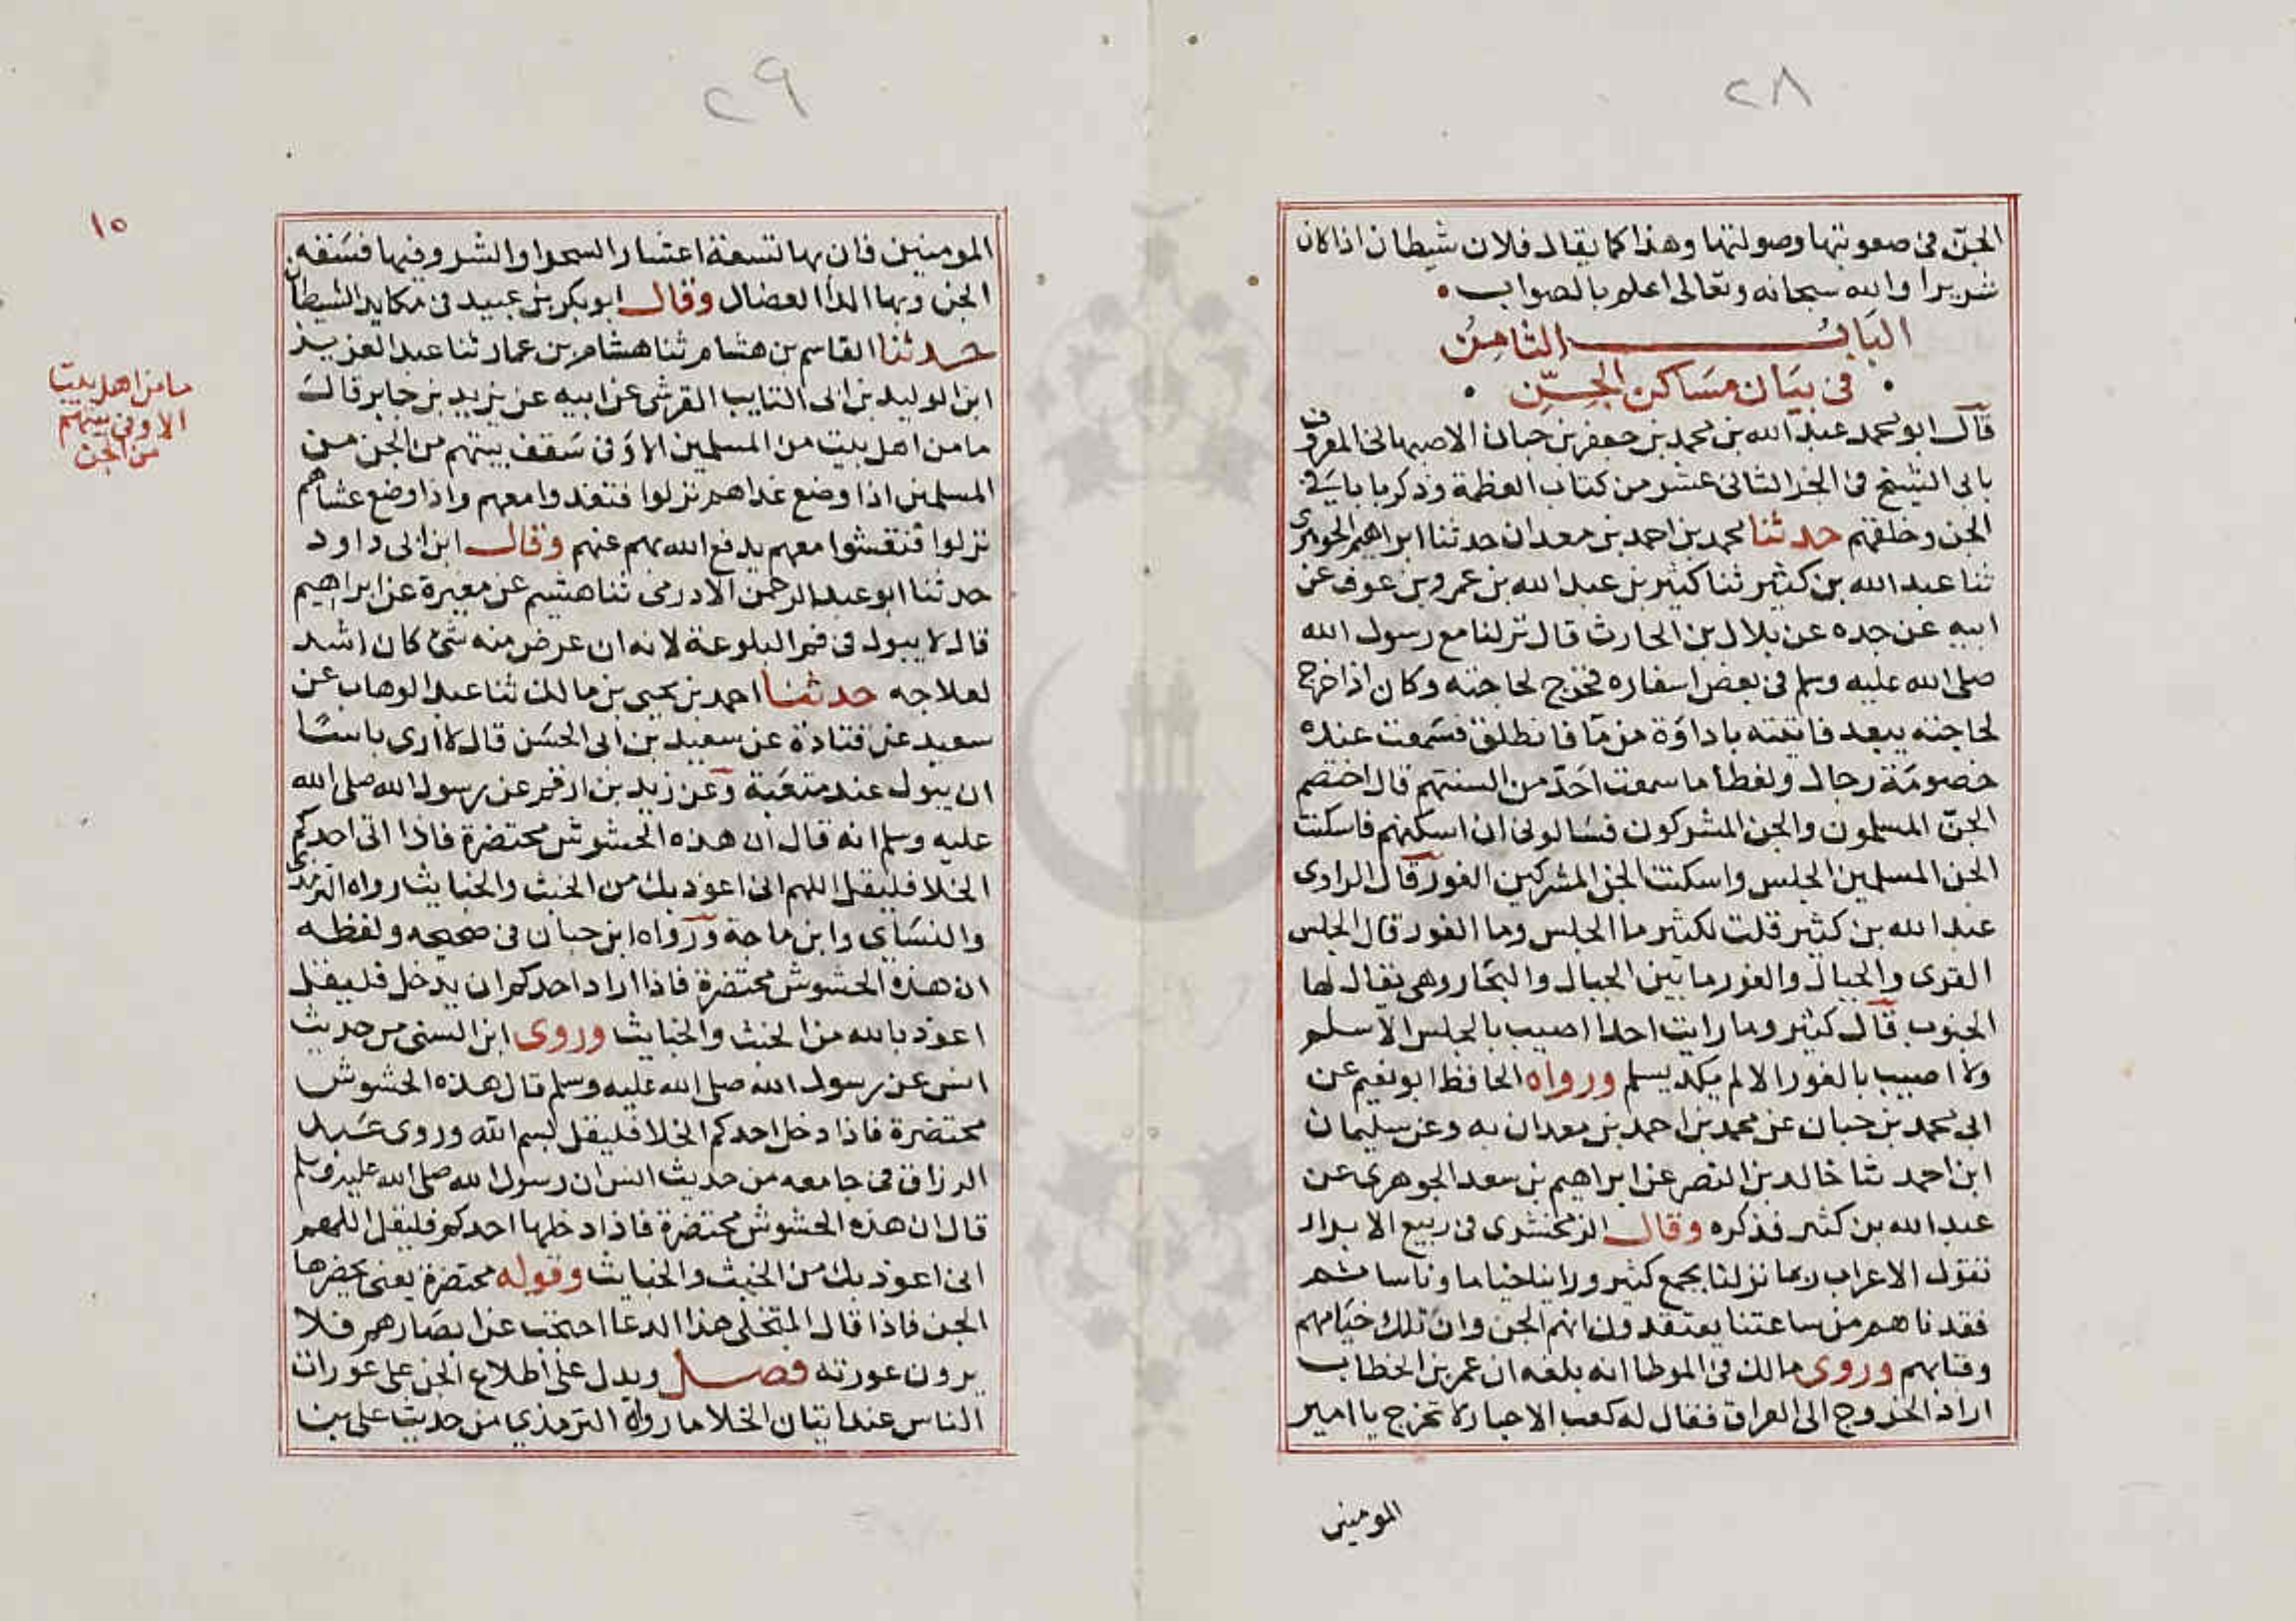 ٢٨
الجنّ فى صعوبتها وصولتها وهذا كما يقال فلان شيطان اذا كان
شريرا والله سبحانه وتعالى اعلم بالصواب
الباب الثامن
فى بيان مساكن الجنّ
قال ابو محمد عبد الله بن محمد بن جعفر بن حبان الاصبهانى المعروف
بابى الشيخ فى الجز الثانى عشر من كتاب العظمة وذكر بابا فى
الجن وخلقهم حدثنا محمد بن احمد بن معدان حدثنا ابراهيم الجوهرى
ثنا عبد الله بن كثير ثنا كثير بن عبد الله بن عمرو بن عوف عن
ابيه عن جده عن بلال بن الحارث قال نزلنا مع رسول الله
صلى الله عليه وسلم فى بعض اسفاره فخرج لحاجته وكان اذا خرج
لحاجته يبعد فاتيته باداوة من ما فانطلق فسمعت عنده
خصومة رجال ولغطا ما سمعت احدّ من السنتهم قال اختصم
الجنّ المسلمون والجن المشركون فسالونى ان اسكنهم فاسكنت
الجن المسلمين الجلس واسكنت الجن المشركين الغور قال الراوى
عبد الله بن كثير قلت لكثير ما الجلس وما الغور قال الجلس
القرى والجبال والغور ما بين الجبال والبحار وهى يقال لها
الجنوب قال كثير وما رايت احدا اصيب بالجلس الا سلم
ولا اصيب بالغور الا لم يكد يسلم ورواه الحافظ ابو نعيم عن
ابى محمد بن حبان عن محمد بن احمد بن معدان به وعن سليمان
ابن احمد ثنا خالد بن النصر عن ابراهيم بن سعد الجوهرى عن
عبد الله بن كثير فذكره وقال الزمخشرى فى ربيع الابرار
تقول الاعراب ربما نزلنا بجمع كثير وراينا خياما وناسا ثم
فقدناهم من ساعتنا يعتقدون انهم الجن وان تلك خيامهم
وقبابهم وروى مالك فى الموطا انه بلغه ان عمر بن الخطاب
اراد الخروج الى العراق فقال له كعب الاحبار لا تخرج يا امير
المومنين
٢٩
المومنين فان بها تسعة اعشار السحر او الشر وفيها فسقه
الجن وبها الدا العضال وقال ابو بكر بن عبيد فى مكايد الشيطان
حدثنا القاسم بن هشام ثنا هشام بن عمار ثنا عبد العزيز
ابن الوليد بن ابى السايب القرشى عن ابيه عن يزيد بن جابر قال
ما من اهل بيت من المسلمين الا وفى سقف بيتهم من الجن من
المسلمين اذا وضع غداهم نزلوا فتغدوا معهم واذا وضع عشاهم
نزلوا فتعشوا معهم يدفع الله بهم عنهم وقال ابن ابى داود
حدثنا ابو عبد الرحمن الادرمى ثنا هشيم عن مغيرة عن ابراهيم
قال لا يبول فى فم البلوعة لانه ان عرض منه شئ كان اشد
لعلاجه حدثنا احمد بن يحيى بن مالك ثنا عبد الوهاب عن
سعيد عن قتادة عن سعيد بن ابى الحسن قال لا ارى باسا
ان يبول عند مثعبة وعن زيد بن ارقم عن رسول الله صلى الله
عليه وسلم انه قال ان هذه الحشوش محتضرة فاذا اتى احدكم
الخلا فليقل اللهم انى اعوذ بك من الخبث والخبايث رواه الترمذى
والنساى وابن ماجة ورواه ابن حبان فى صحيحه ولفظه
ان هذه الحشوش محتضرة فاذا اراد احدكم ان يدخل فليقل
اعوذ بالله من الخبث والخبايث وروى ابن السنى من حديث
انس عن رسول الله صلى الله عليه وسلم قال هذه الحشوش
محتضرة فاذا دخل احدكم الخلا فليقل بسم الله وروى عبد
الرزاق فى جامعه من حديث انس ان رسول الله صلى الله عليه وسلم
قال ان هذه الحشوش محتضرة فاذا دخلها احدكم فليقل اللهم
انى اعوذ بك من الخبث والخبايث وقوله محتضرة يعنى يحضرها
الجن فاذا قال المتخلى هذا الدعا احتجب عن ابصارهم فلا
يرون عورته فصل ويدل على اطلاع الجن على عورات
الناس عند اتيان الخلا ما رواه الترمذي من حديث على بن
١٥
ما من اهل بيت
الا وفى بيتهم
من الجن